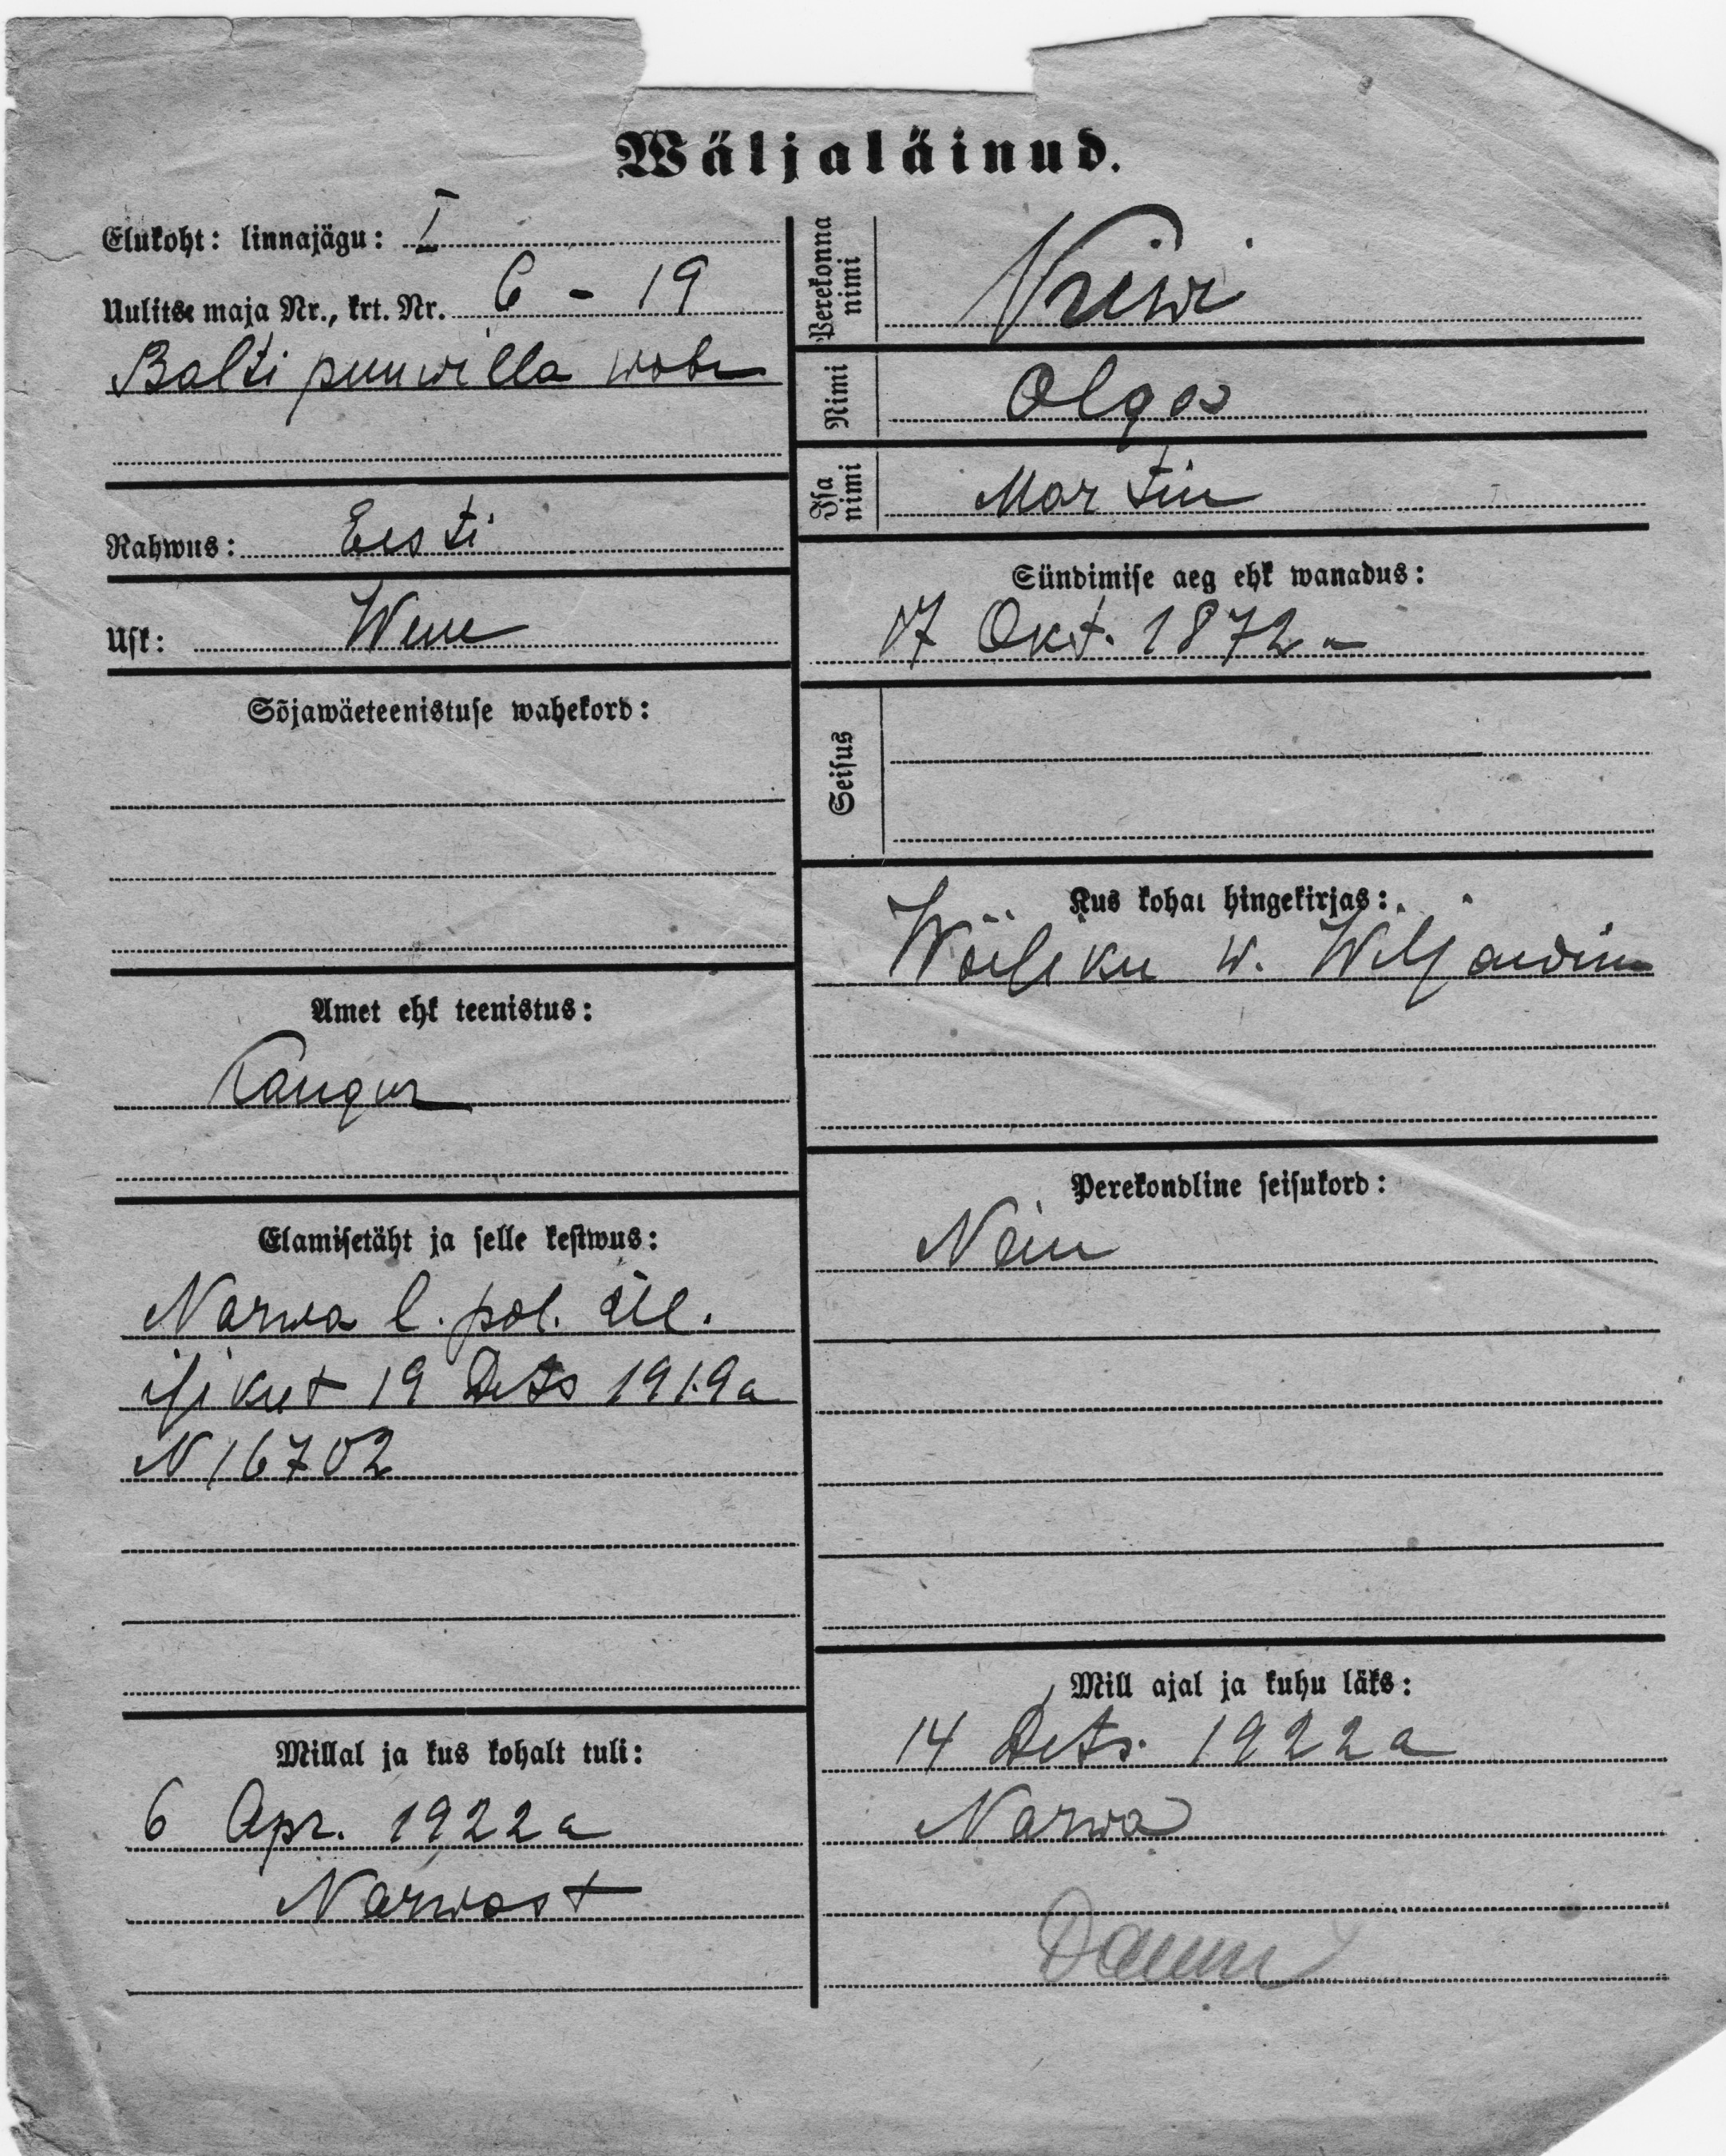 Wäljaläinud.
Elukoht: linnajägu: I
Uulitse maja Nr., krt. Nr. 6 - 19
Balti puuwilla wabr
Rahwus: Eesti
Usk: Wene
Sõjawäeteenistuse wahekord:
Amet ehk teenistus:
Kangur
Elamisetäht ja selle kestwus:
Narwa l. pol. ül.
isikut 19 Dets 1919a
N 16702
Millal ja kus kohalt tuli:
6 Apr. 1922 a
Narwast
Perekonna nimi
Nimi Olga
Isa nimi Martin
Sündimise aeg ehk wanadus:
17 Okt. 1872
Seisus
Kus kohal hingekirjas:
w. Wiljandim
Perekondline seisukord:
Mill ajal ja kuhu läks:
14 Dets. 1922 a
Narwa